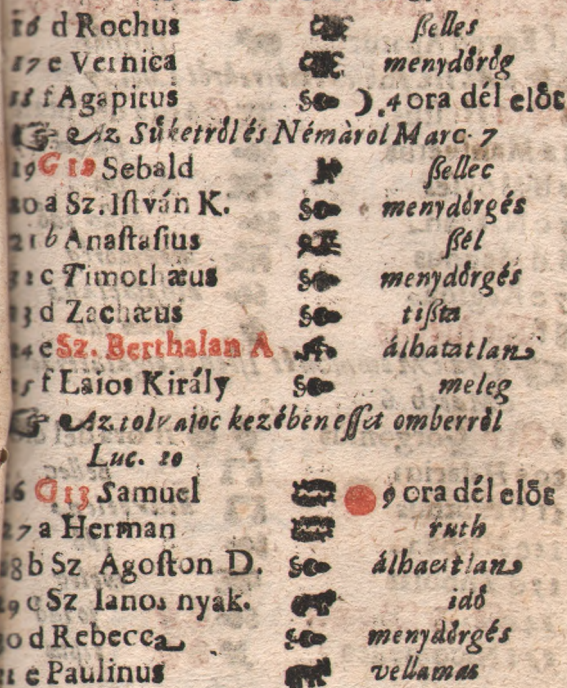 16 d Rochus ßelles
17 e Vernica menydŏrŏg
18 f Agapitus ☽. 4 ora dél elŏt
Az Sŭketrŏl és Némàrol Marc. 7
19 G 12 Sebald ßellec
20 a Sz. Iſtván K. menydŏrgés
21 b Anaſtaſius ßél
22 c Timothæus menydŏrgés
23 d Zachæus tißta
24 e Sz. Berthalan A álhatatlan
25 f Laios Király meleg
Az tolvaioc kezében eſſet omberrŏl
Luc. 10
26 G 13 Samuel 9 ora dél elŏt
27 a Herman ruth
28 b Sz Agoſton D. álhaetlan
29 c Sz Ianos nyak. idŏ
30 d Rebecca menydŏrgés
31 e Paulinus vellamas